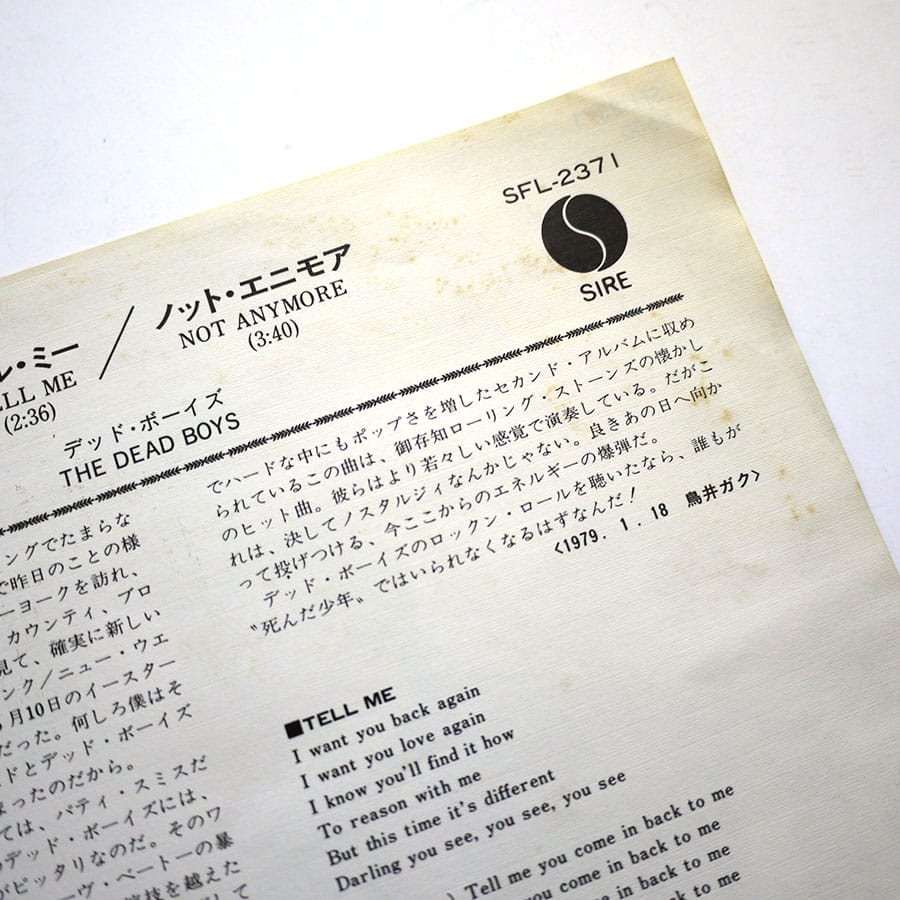 SFL-2371
SIRE
ル・ミー
ELL ME
(2:36)
ノット・エニモア
NOT ANYMORE
(3:40)
デッド・ボーイズ
THE DEAD BOYS
ングでたまらな
で昨日のことの様
ーヨークを訪れ、
カウンティ、プロ
見て、確実に新しい
ンク/ニュー・ウエ
月10日のイースター
だった。何しろ僕はそ
ドとデッド・ボーイズ
まったのだから。
ては、パティ・スミスだ
のデッド・ボーイズには、
がピッタリなのだ。そのワ
ーヴ・ベートーの暴
演技を越えた
して
でハードな中にもポップさを増したセカンド・アルバムに収め
られているこの曲は、御存知ローリング・ストーンズの懐かし
のヒット曲。彼らはより若々しい感覚で演奏している。だがこ
れは、決してノスタルジィなんかじゃない。良きあの日へ向か
って投げつける、今ここからのエネルギーの爆弾だ。
デッド・ボーイズのロックン・ロールを聴いたなら、誰もが
〝死んだ少年〟ではいられなくなるはずなんだ!
<1979. 1. 18 鳥井ガク>
■TELL ME
I want you back again
I want you love again
I know you'll find it how
To reason with me
But this time it's different
Darling you see, you see, you see
) Tell me you come in back to me
you come in back to me
e in back to me
k to me